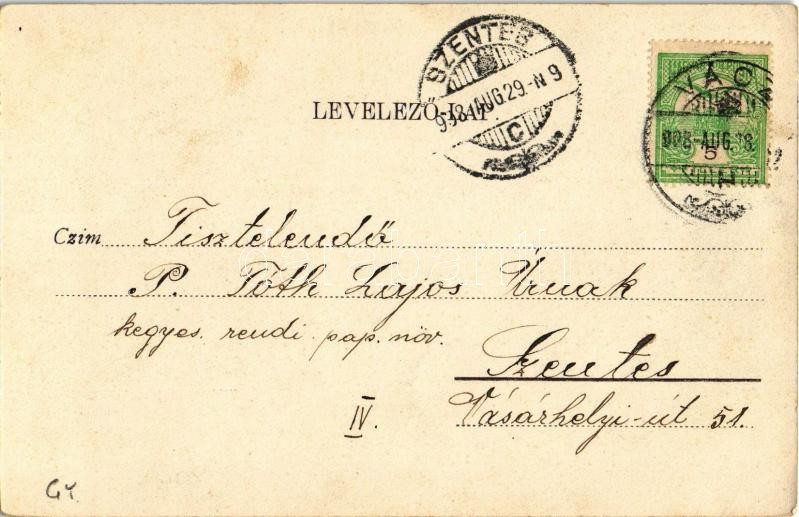 SZENTES
908 AUG.29.-N 9
C
VÁC
908-AUG. 28.
5
LEVELEZŐ-LAP.
Czim Tisztelendő
P. Tóth Lajos Úrnak
kegyes. rendi pap. növ.
Szentes
IV. Vásárhelyi-út 51.
GY.